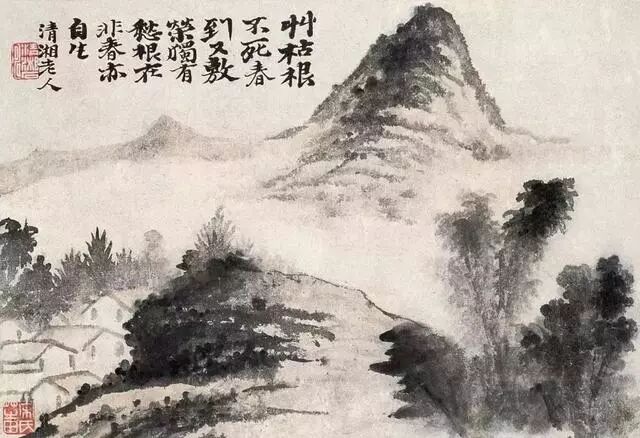 艸枯根
不死春
到又敷
榮獨有
愁根在
非春亦
自生
清湘老人